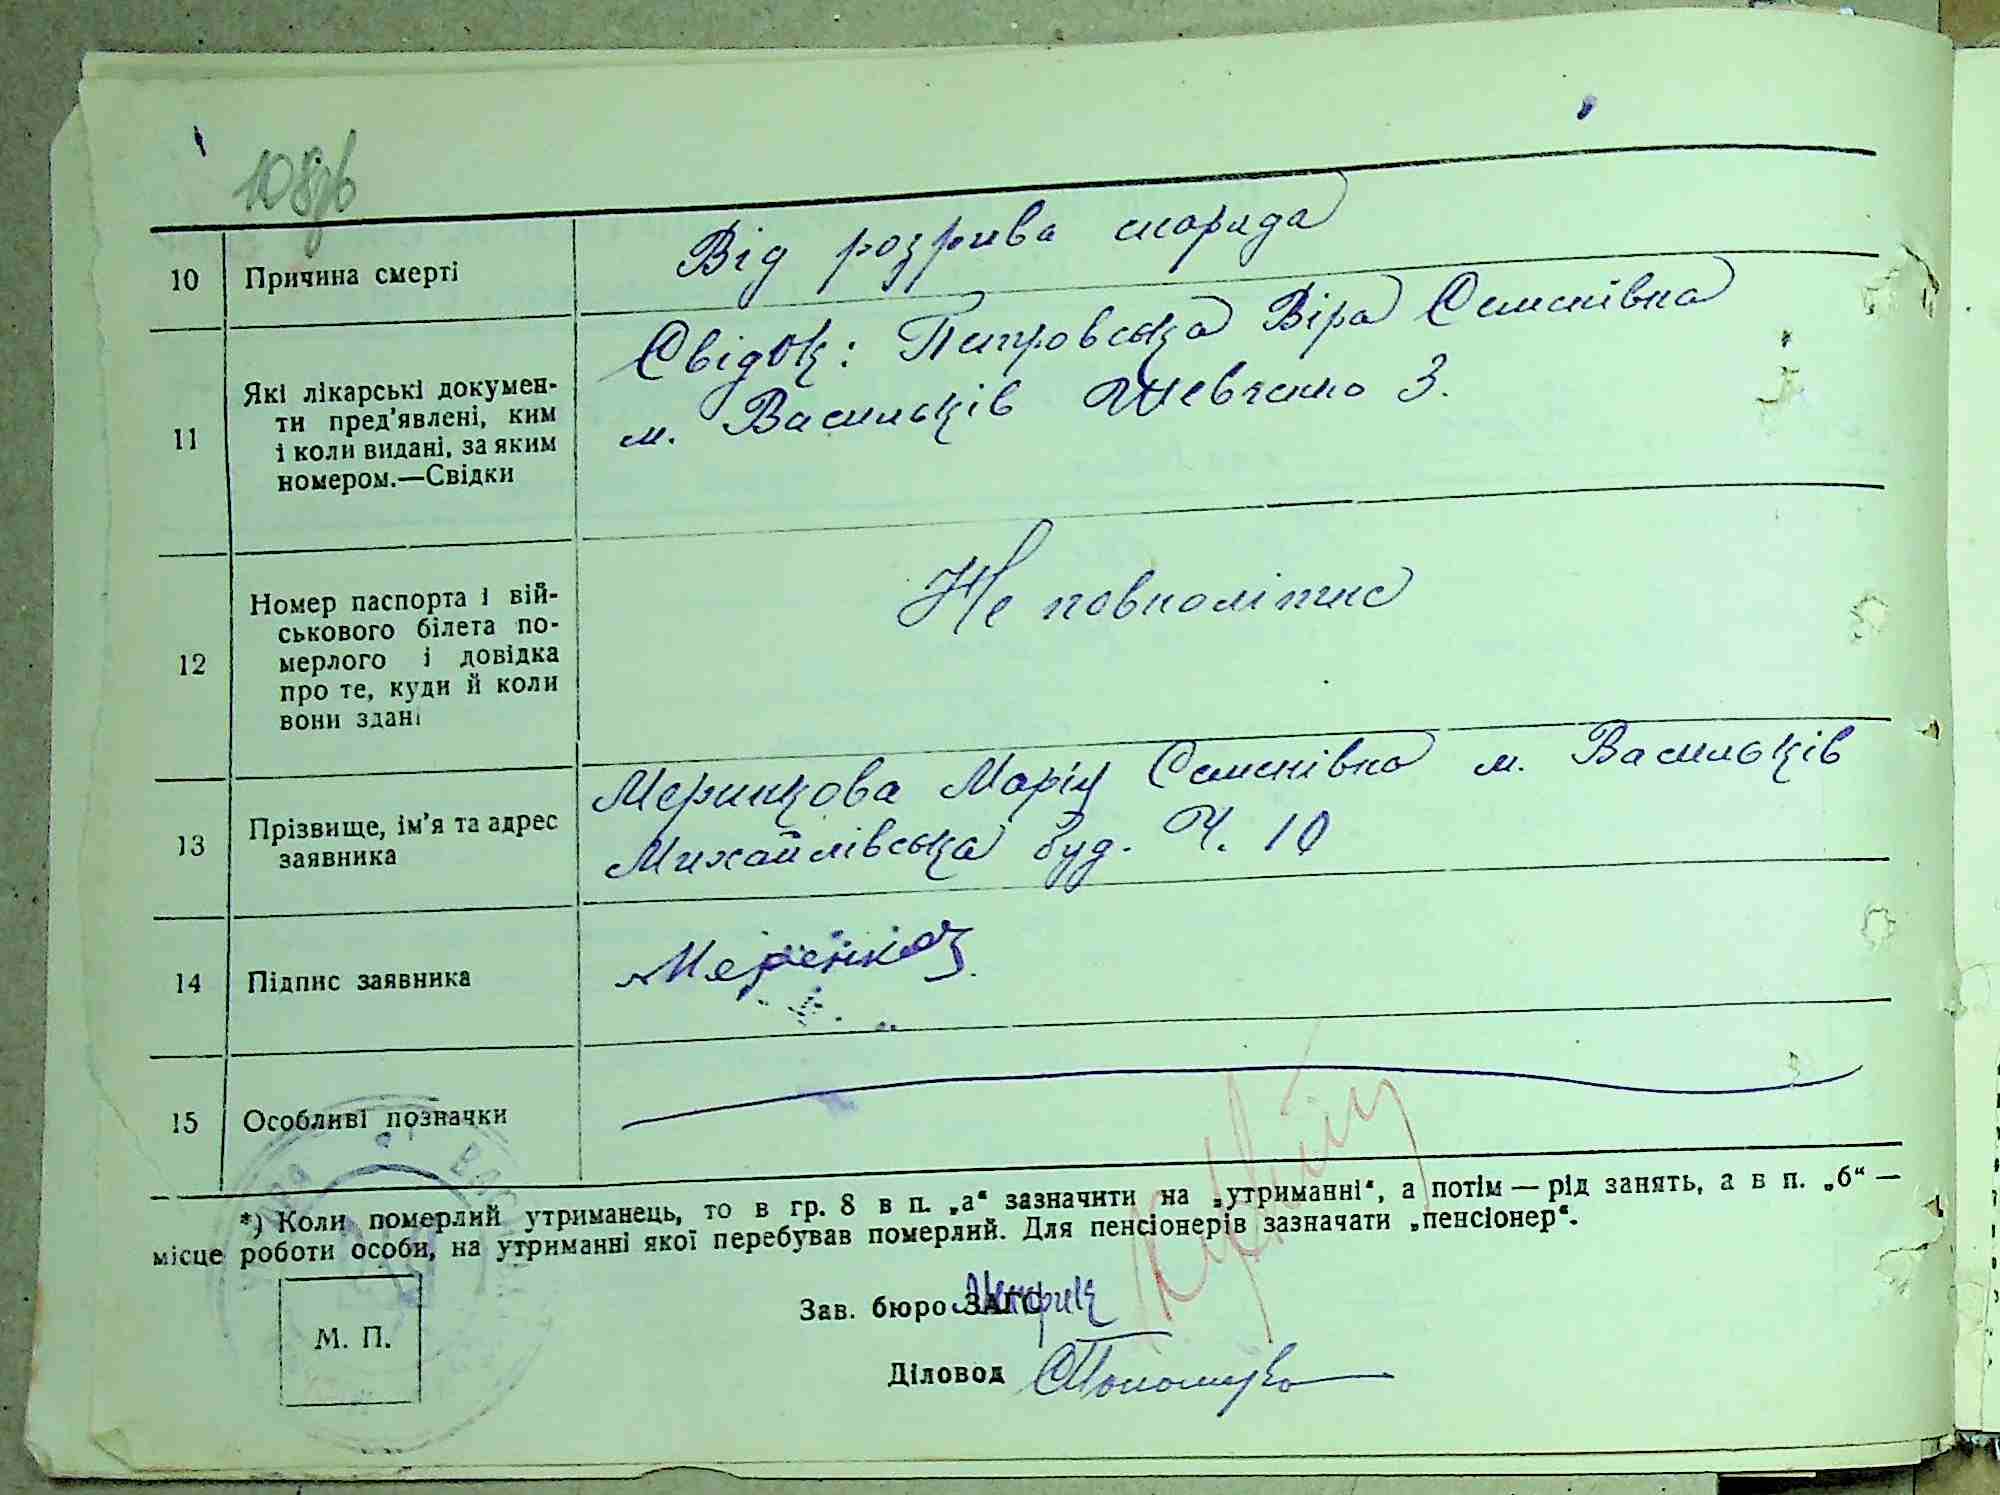 108зв
10 Причина смерті Від розрива снаряда
11 Які лікарські докумен-
ти пред'явлені, ким
і коли видані, за яким
номером.—Свідки
Свідок: Петровська Віра Семенівна
м. Васильків Шевченко 3.
12 Номер паспорта і вій-
ськового білета по-
мерлого і довідка
про те, куди й коли
вони здані
Не повнолітнє
13 Прізвище, ім'я та адрес
заявника
Меринкова Марія Семенівна м. Васильків
Михайлівська буд. Ч. 10
14 Підпис заявника
15 Особливі позначки
*) Коли померлий утриманець, то в гр. 8 в п. „а“ зазначити на „утриманні“, а потім — рід занять, а в п. „б“ —
місце роботи особи, на утриманні якої перебував померлий. Для пенсіонерів зазначати „пенсіонер“.
Зав. бюро ЗАГС
М. П.
Діловод